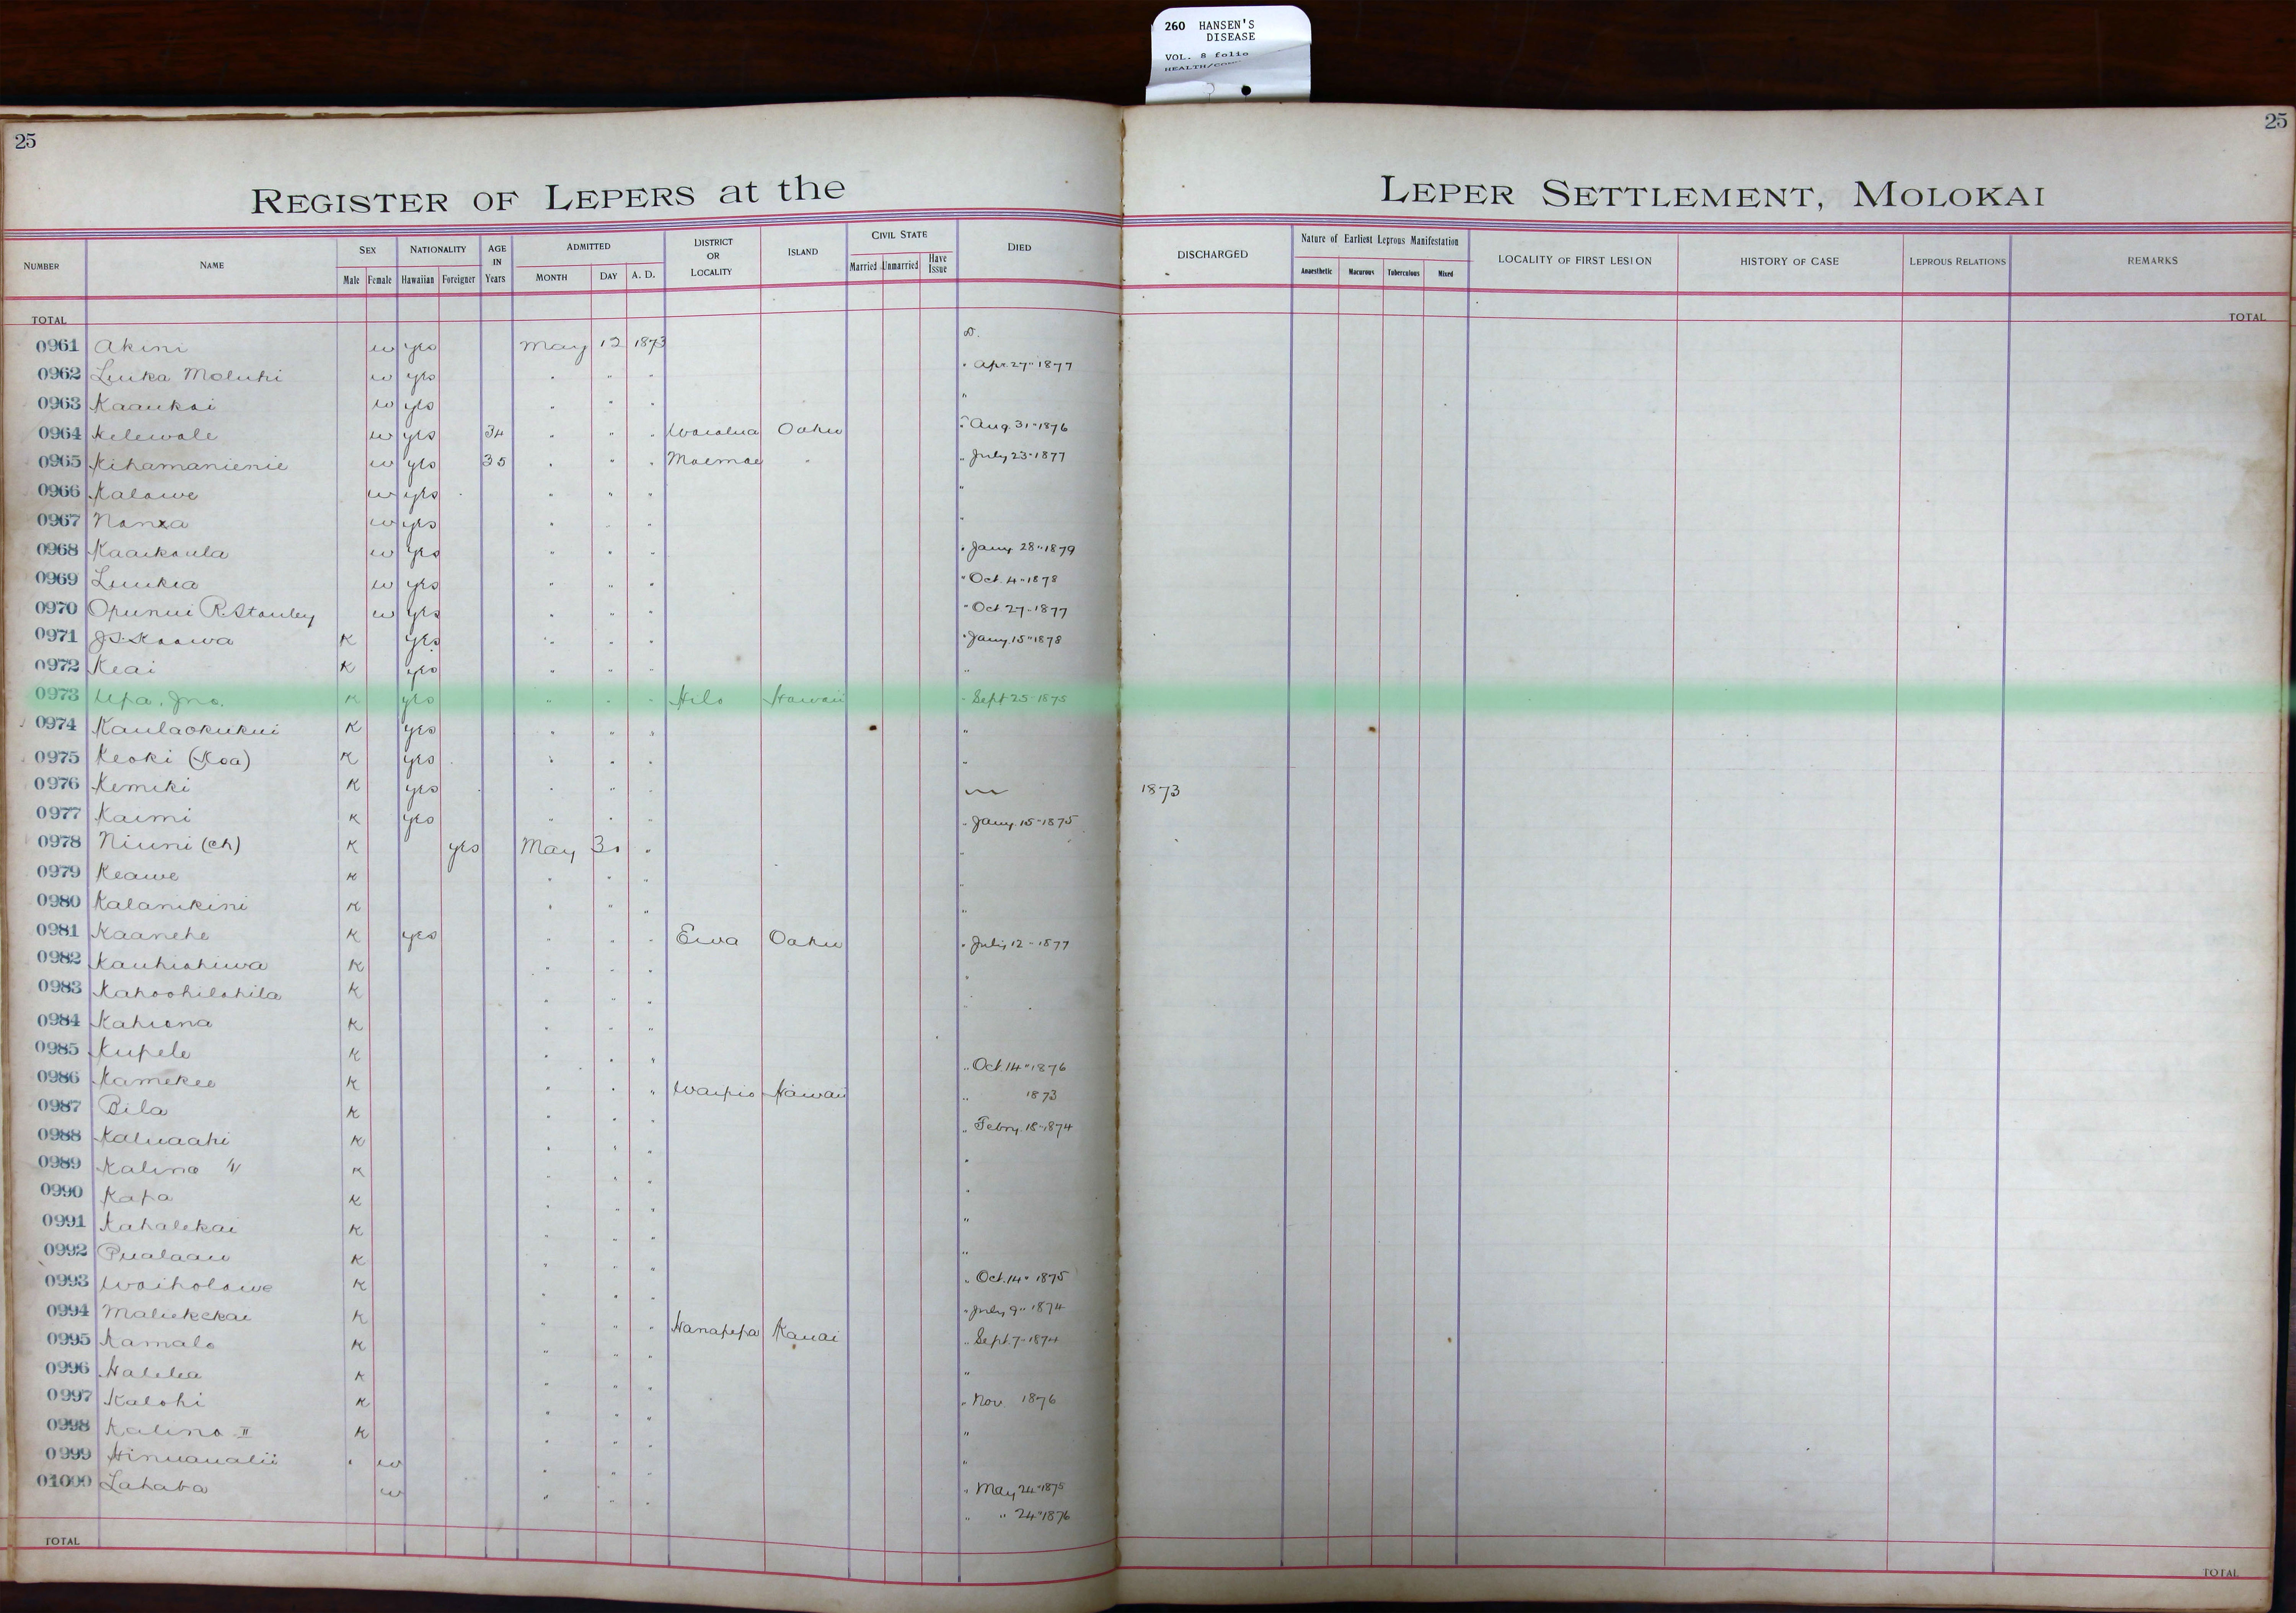 260 HANSEN'S
DISEASE
VOL. 8 folio
25
25
REGISTER OF LEPERS at the LEPER SETTLEMENT, MOLOKAI
NUMBER NAME SEX Male Female NATIONALITY Hawaiian Foreigner AGE IN Years ADMITTED MONTH DAY A. D. DISTRICT OR LOCALITY ISLAND CIVIL STATE Married Unmarried Have Issue DIED DISCHARGED Nature of Earliest Leprous Manifestation Anaesthetic Macurous Tuberculous Mixed LOCALITY OF FIRST LESION HISTORY OF CASE LEPROUS RELATIONS REMARKS
TOTAL TOTAL
0961 Akini w yes May 12 1873 D.
0962 Luika Moluhi w yes " " " " Apr. 27" 1877
0963 Kaaukai w yes " " " "
0964 Kelewale w yes 34 " " " Waialua Oahu " Aug. 31" 1876
0965 Kihamanienie w yes 35 " " " Moemoe " " July 23" 1877
0966 Kalawe w yes " " " "
0967 w yes " " " "
0968 Kaaikaula w yes " " " " Jany. 28" 1879
0969 Luukia w yes " " " " Oct. 4" 1878
0970 Opunui R. Stanley w yes " " " " Oct 27" 1877
0971 J.S. Kaawa K yes " " " " Jany. 15" 1878
0972 Keai K yes " " " "
0973 Upa, Jno. K yes " " " Hilo Hawaii " Sept 25" 1875
0974 Kaulaokukui K yes " " " "
0975 Keoki (Koa) K yes " " " "
0976 Kemiki K yes " " " 1873
0977 Kaimi K yes " " " " Jany. 15" 1875
0978 Niuni (Ch) K yes May 30 " "
0979 Keawe K " " " "
0980 Kalanikini K " " " "
0981 Kaanehe K yes " " " Ewa Oahu " July 12" 1877
0982 Kauhiohiwa K " " " "
0983 Kahoohilohila K " " " "
0984 Kahiona K " " "
0985 Kupele K " " " " Oct. 14" 1876
0986 Kamekeo K " " " Waipio Hawaii " 1873
0987 Bila K " " " " Febry. 18" 1874
0988 Kaluaahi K " " " "
0989 Kalino K " " " "
0990 Kapa K " " " "
0991 Kahalekai K " " " "
0992 Pualaau K " " " " Oct. 14" 1875
0993 Waiholowe K " " " " July 9" 1874
0994 Maliekekai K " " " Hanapepa Kauai " Sept. 7" 1874
0995 Kamalo K " " " "
0996 Halelea K " " " " Nov. 1876
0997 Kalohi K " " " "
0998 Kalino II K " " " "
0999 Hinuaualii w " " " " May 24" 1875
01000 Lahaba w " " " " " 24" 1876
TOTAL TOTAL